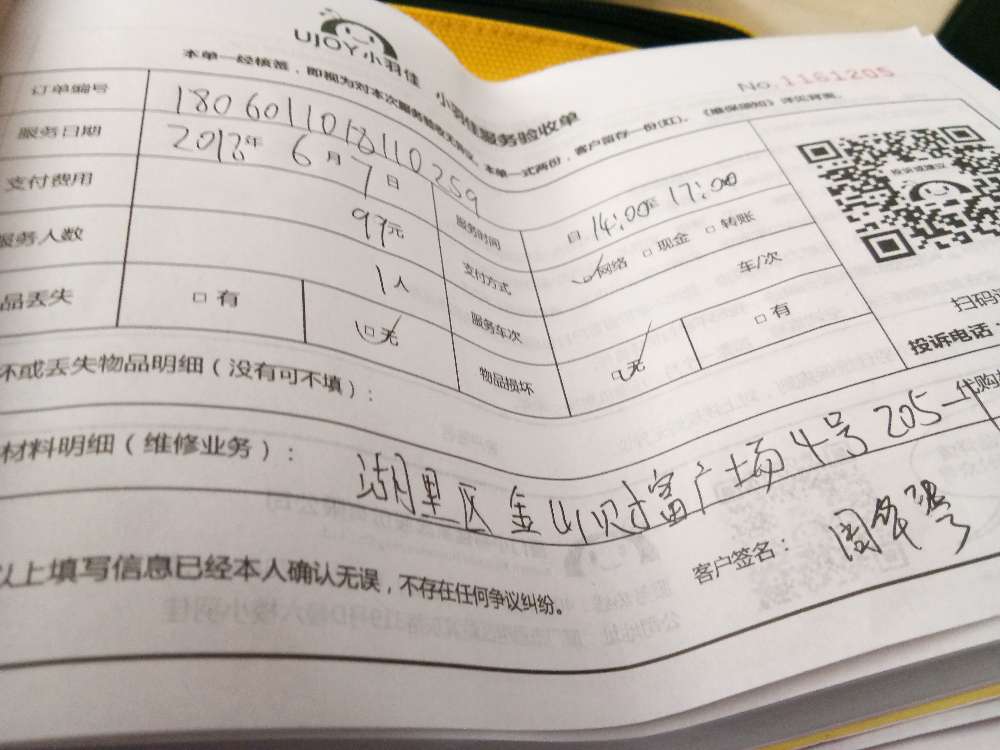 UJOY小羽佳
小羽佳服务验收单
No.1161205
本单一经核签，即视为对本次服务验收无异议，本单一式两份，客户留存一份(红)。《维保须知》详见背面。
订单编号 1806011018110259
服务日期 2018年 6月 7日 服务时间 自 14:00至 17:00
支付费用 97元 支付方式 网络 □ 现金 □ 转账
服务人数 1人 服务车次 车/次
品丢失 □ 有 □ 无 物品损坏 □ 无 □ 有
坏或丢失物品明细（没有可不填）：
材料明细（维修业务）：
湖里区金山财富广场4号205一代购
以上填写信息已经本人确认无误，不存在任何争议纠纷。
客户签名：
扫码
投诉电话